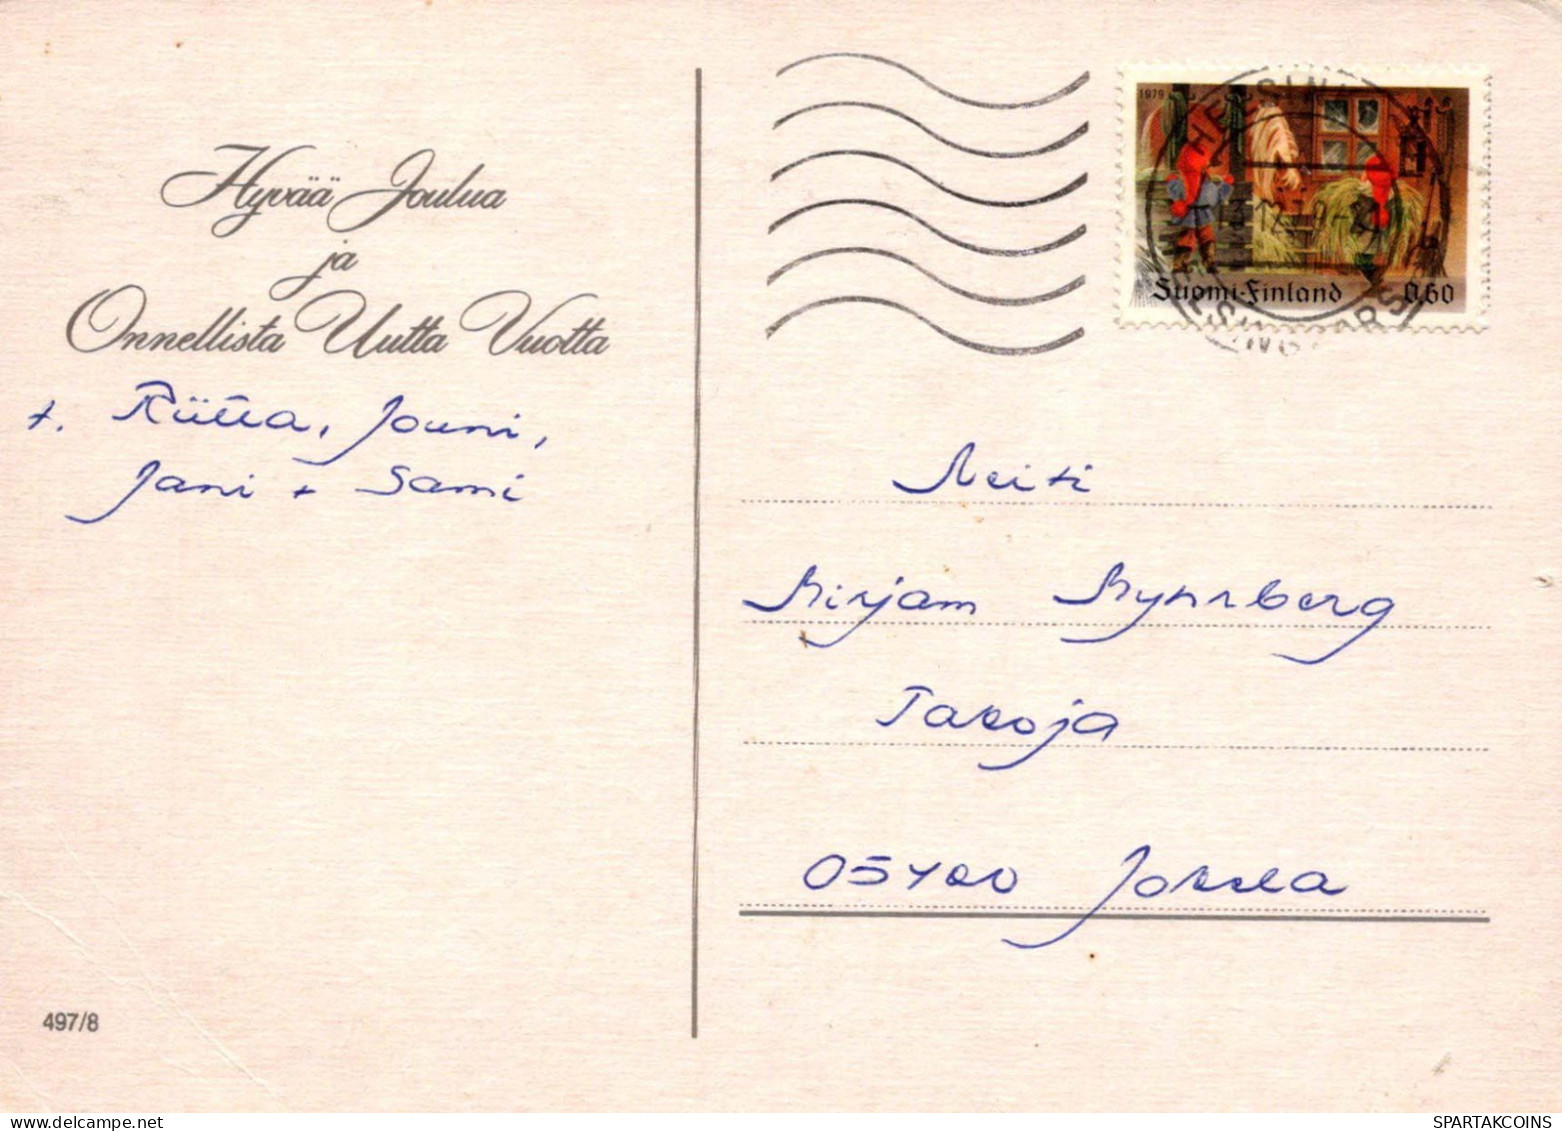 Hyvää Joulua
ja
Onnellista Uutta Vuotta
t. Riitta, Jouni,
Jani + Sami
497/8
1979
Suomi-Finland 0,60
HELSINKI
HELSINGFORS
Neiti
Mirjam Myhrberg
Takoja
05400 Jokela
SPARTAKCOINS